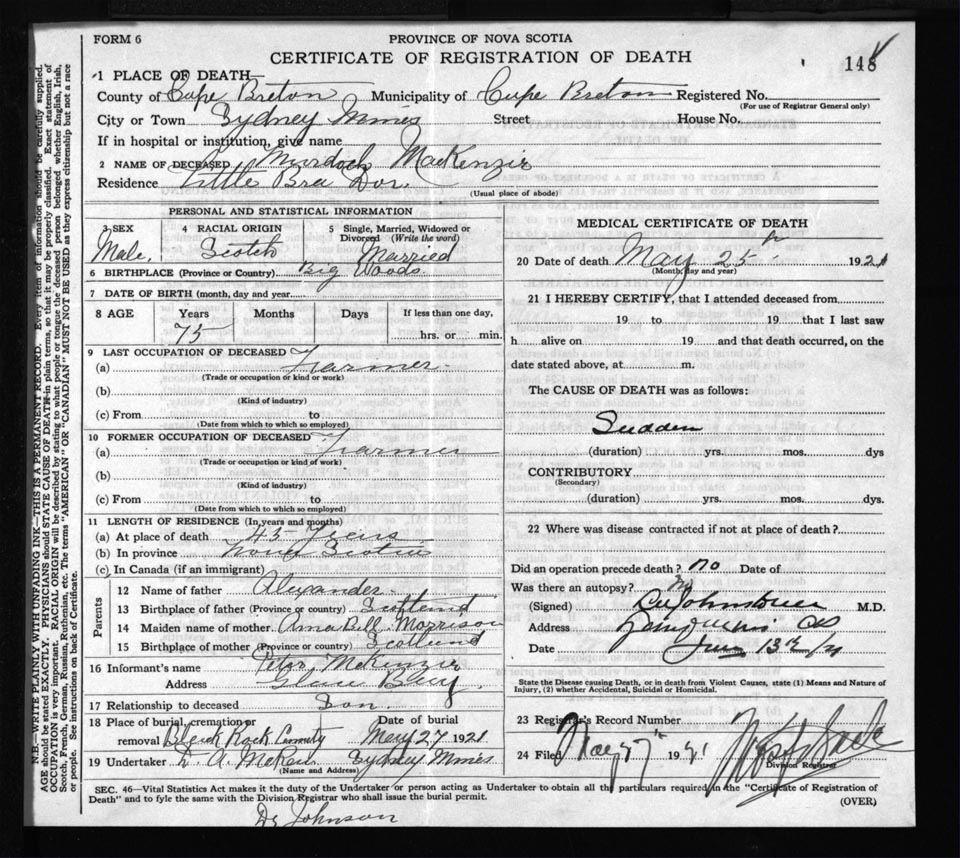 FORM 6
PROVINCE OF NOVA SCOTIA
CERTIFICATE OF REGISTRATION OF DEATH
148
1 PLACE OF DEATH—
County of Cape Breton Municipality of Cape Breton Registered No.
(For use of Registrar General only)
City or Town Sydney Mines Street House No.
If in hospital or institution, give name
2 NAME OF DECEASED Murdoch MacKenzie
Residence Little Bra Dor.
(Usual place of abode)
PERSONAL AND STATISTICAL INFORMATION
3 SEX Male, 4 RACIAL ORIGIN Scotch 5 Single, Married, Widowed or Divorced (Write the word) Married
6 BIRTHPLACE (Province or Country) Big Woods
7 DATE OF BIRTH (month, day and year)
8 AGE Years 75 Months Days If less than one day, hrs. or min.
9 LAST OCCUPATION OF DECEASED
(a) Farmer
(Trade or occupation or kind or work)
(b)
(Kind of industry)
(c) From to
(Date from which to which so employed)
10 FORMER OCCUPATION OF DECEASED
(a) Farmer
(Trade or occupation or kind of work)
(b)
(Kind of industry)
(c) From to
(Date from which to which so employed)
11 LENGTH OF RESIDENCE (In years and months)
(a) At place of death 45 Years
(b) In province Nova Scotia
(c) In Canada (if an immigrant)
Parents
12 Name of father Alexander
13 Birthplace of father (Province or country) Scotland
14 Maiden name of mother Morrison
15 Birthplace of mother (Province or country) Scotland
16 Informant's name Peter McKenzie
Address Glace Bay
17 Relationship to deceased Son
18 Place of burial, cremation or removal Black Rock Date of burial May 27 1921
19 Undertaker Sydney Mines
(Name and Address)
MEDICAL CERTIFICATE OF DEATH
20 Date of death May 25 1921
(Month, day and year)
21 I HEREBY CERTIFY, that I attended deceased from
19 to 19 that I last saw
h alive on 19 and that death occurred, on the
date stated above, at m.
The CAUSE OF DEATH was as follows:
Sudden
(duration) yrs. mos. dys
CONTRIBUTORY
(Secondary)
(duration) yrs. mos. dys.
22 Where was disease contracted if not at place of death?
Did an operation precede death? no Date of
Was there an autopsy? no
(Signed) M.D.
Address
Date June 13th
State the Disease causing Death, or in death from Violent Causes, state (1) Means and Nature of
Injury, (2) whether Accidental, Suicidal or Homicidal.
23 Registrar's Record Number
24 Filed May 27 1921
Division Registrar
SEC. 46—Vital Statistics Act makes it the duty of the Undertaker or person acting as Undertaker to obtain all the particulars required in the "Certificate of Registration of
Death" and to fyle the same with the Division Registrar who shall issue the burial permit.
(OVER)
Dr Johnson
N.B.—WRITE PLAINLY WITH UNFADING INK—THIS IS A PERMANENT RECORD. Every item of information should be carefully supplied.
AGE should be stated EXACTLY. PHYSICIANS should STATE CAUSE OF DEATH in plain terms, so that it may be properly classified. Exact statement of
OCCUPATION is very important. RACIAL ORIGIN will be described by stating to what people or tongue the deceased person belonged whether English, Irish,
Scotch, French, German, Russian, Ruthenian, etc. The terms "AMERICAN" OR "CANADIAN" MUST NOT BE USED as they express citizenship but not a race
or people. See instructions on back of Certificate.